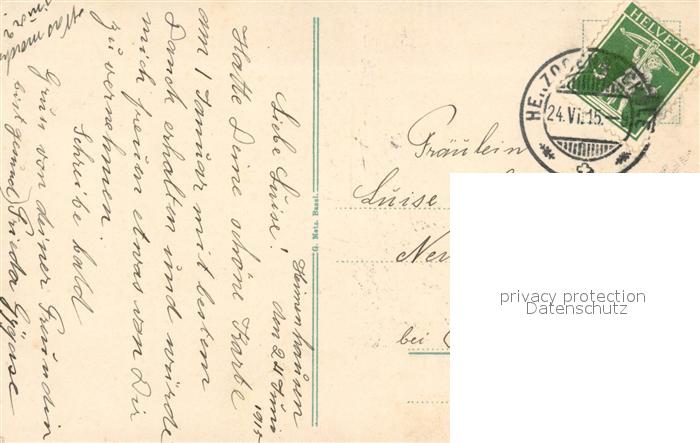 Heimenhausen
den 24 Juni
1915
Liebe Luise!
Hatte Deine schöne Karte
am 1 Januar mit bestem
Danck erhalten und würde
mich freuen etwas von Dir
zu vernehmen.
Schreibe bald
Gruss von deiner Freundin
Frieda Gygase
G. Metz, Basel.
HELVETIA
5
24.VI.15.–9
Fräulein
Luise
bei
privacy protection
Datenschutz